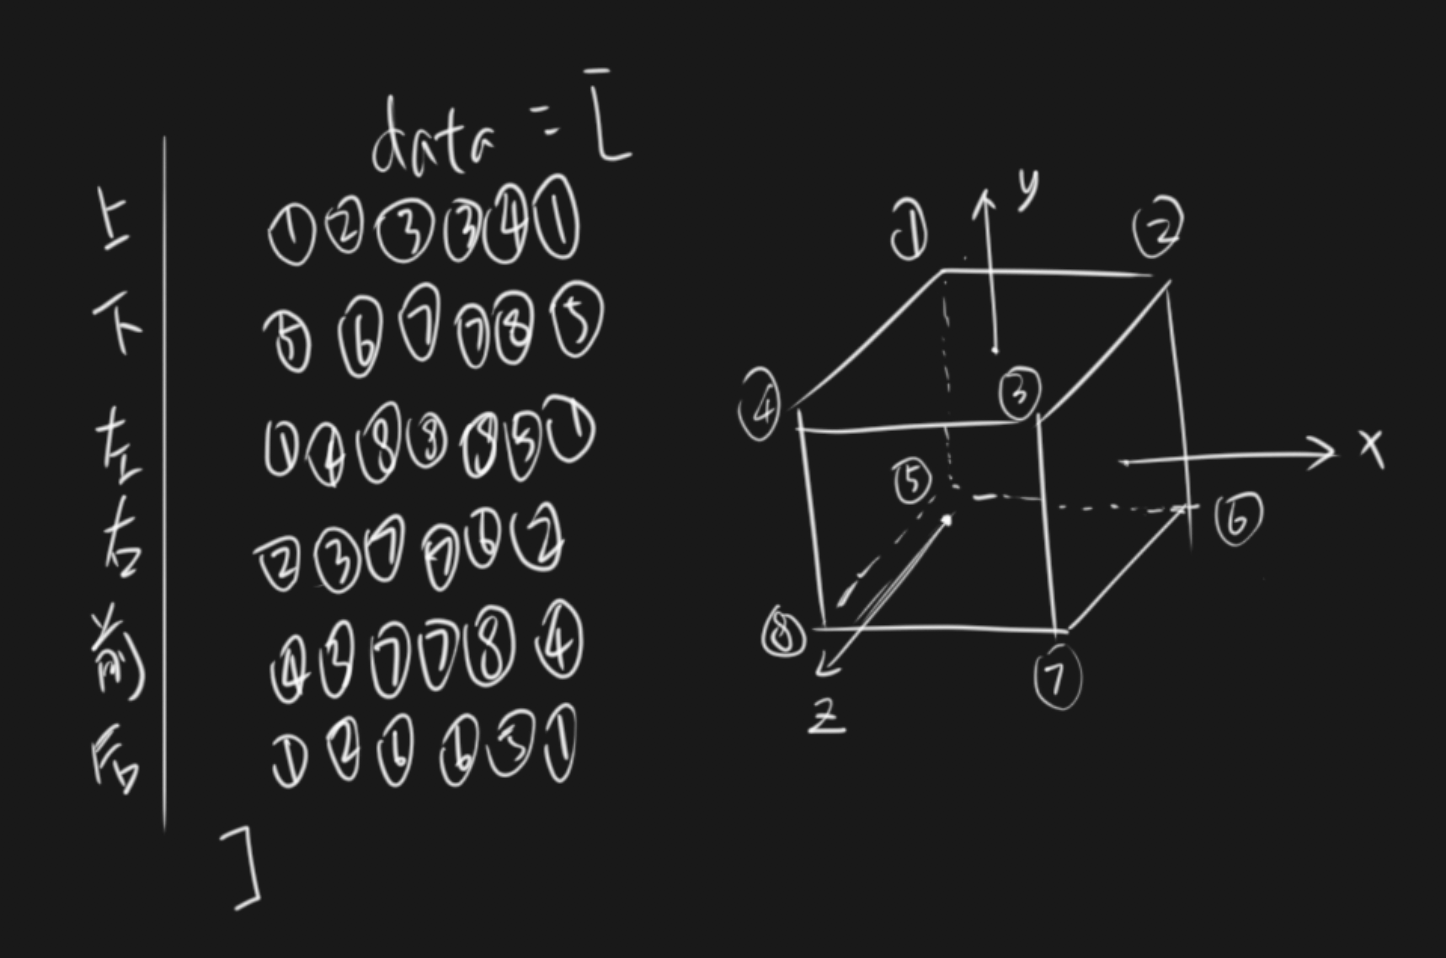 data = [
上 ① ② ③ ③ ④ ①
下 ⑤ ⑥ ⑦ ⑦ ⑧ ⑤
左 ① ④ ⑧ ⑧ ⑤ ①
右 ② ③ ⑦ ⑦ ⑥ ②
前 ④ ③ ⑦ ⑦ ⑧ ④
后 ① ② ⑥ ⑥ ⑤ ①
]
y
① ②
④ ③
x
⑤ ⑥
⑧ ⑦
z